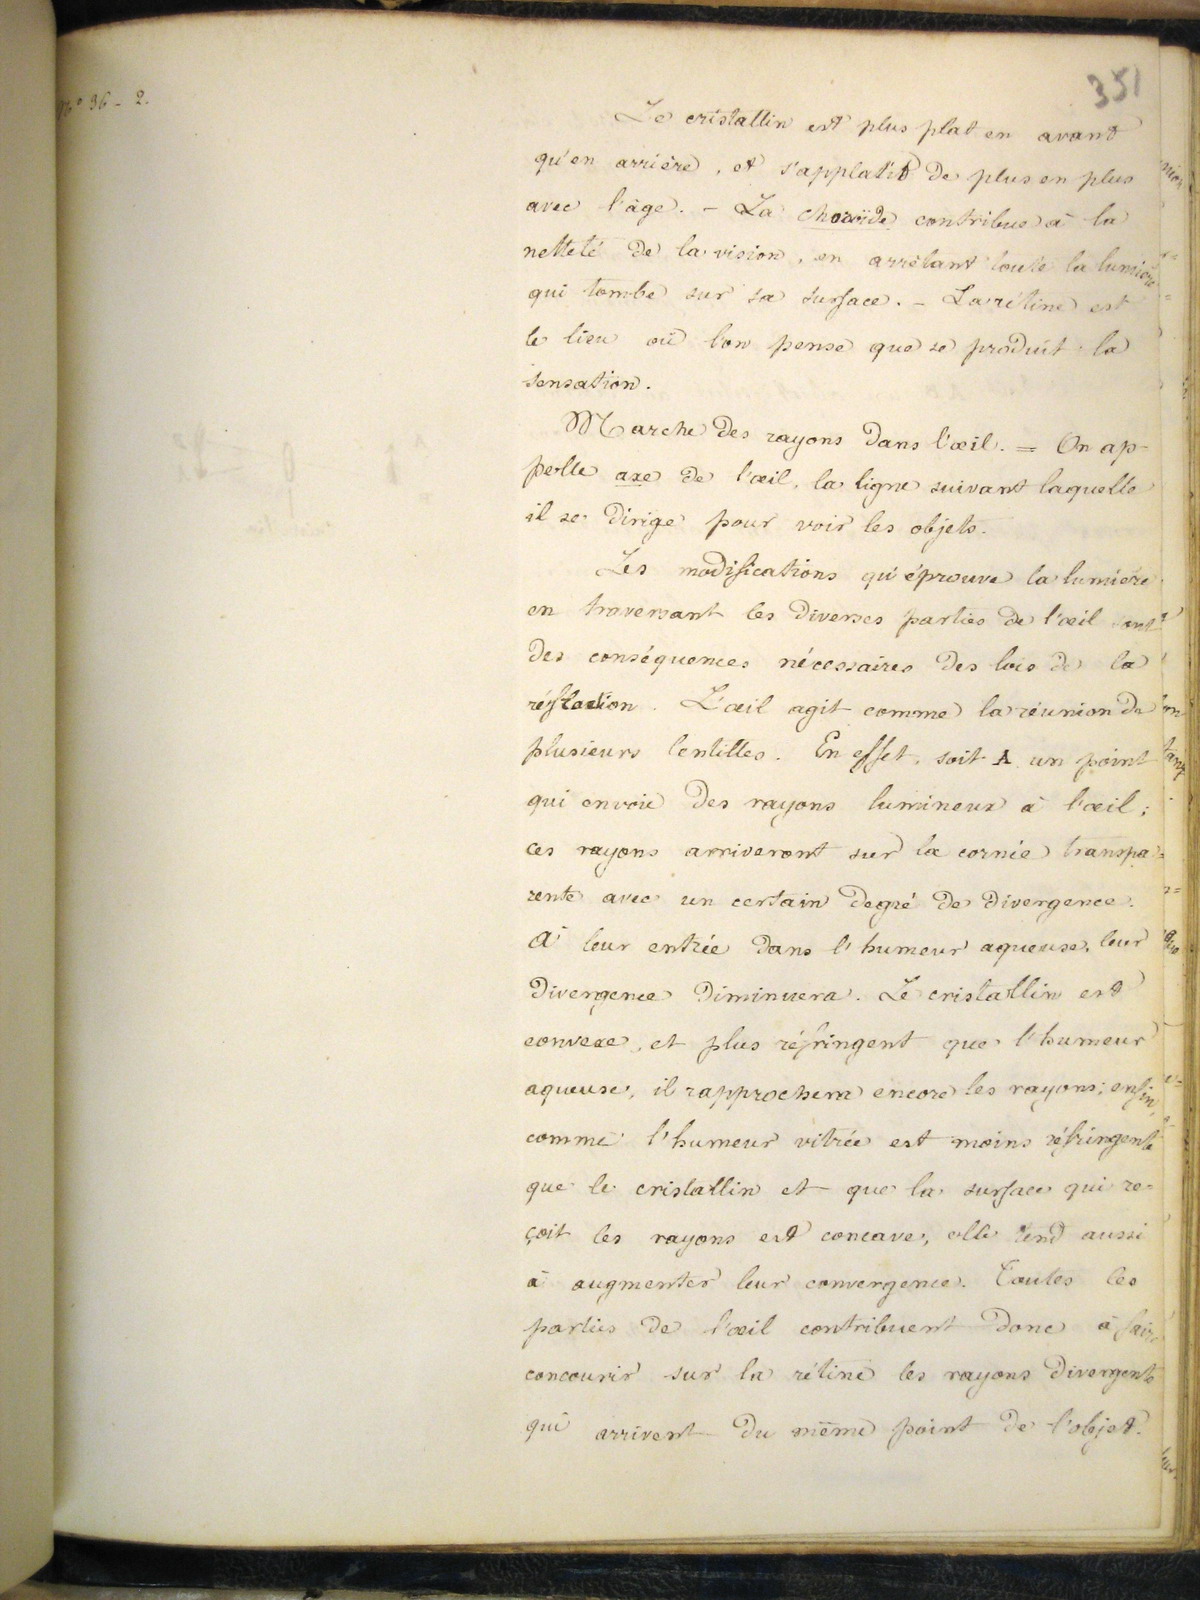 N° 36 - 2.
351
Le cristallin est plus plat en avant
qu'en arrière, et s'applatit de plus en plus
avec l'âge. - La choroïde contribue à la
netteté de la vision, en arrêtant toute la lumière
qui tombe sur sa surface. - La rétine est
le lieu où l'on pense que se produit la
sensation.
Marche des rayons dans l'œil. = On ap-
pelle axe de l'œil, la ligne suivant laquelle
il se dirige pour voir les objets.
Les modifications qu'éprouve la lumière
en traversant les diverses parties de l'œil sont
des conséquences nécessaires des lois de la
réfraction. L'œil agit comme la réunion de
plusieurs lentilles. En effet, soit A un point
qui envoie des rayons lumineux à l'œil;
ces rayons arriveront sur la cornée transpa-
rente avec un certain degré de divergence.
A leur entrée dans l'humeur aqueuse, leur
divergence diminuera. Le cristallin est
convexe, et plus réfringent que l'humeur
aqueuse, il rapprochera encore les rayons; enfin,
comme l'humeur vitrée est moins réfringente
que le cristallin et que la surface qui re-
çoit les rayons est concave, elle tend aussi
à augmenter leur convergence. Toutes les
parties de l'œil contribuent donc à faire
concourir sur la rétine les rayons divergents
qui arrivent du même point de l'objet.